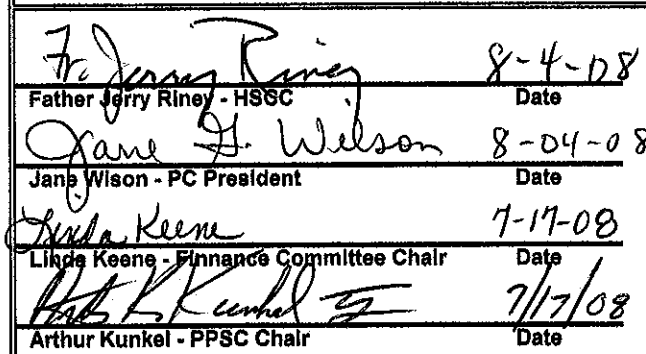 Fr. Jerry Riney 8-4-08
Father Jerry Riney - HSCC Date
Jane G. Wilson 8-04-08
Jane Wlson - PC President Date
Linda Keene 7-17-08
Linde Keene - Finnance Committee Chair Date
Kunkel 7/17/08
Arthur Kunkel - PPSC Chair Date